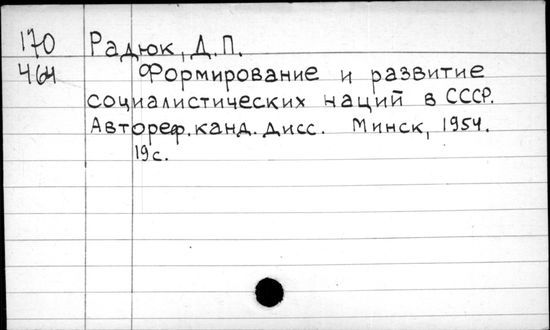 170 Радюк, Д.П.
464 Формирование и развитие
социалистических наций в СССР.
Автореф. канд. дисс. Минск, 1954.
19с.